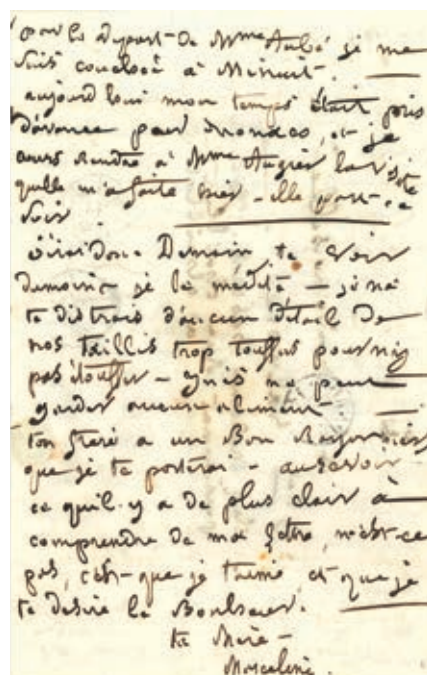 pour le départ de Mme Aubé je me
suis couchée à Minuit.
aujourd'hui mon temps était pris
d'avance pour et je
cours rendre à Mme Augier la visite
qu'elle m'a faite hier - elle part ce
soir.
j'irai donc Demain te voir
dumoins je le médite - je ne
te distrais d'aucun détail de
nos taillis trop touffus pour n'y
pas étouffer - ynès ne peut
garder aucun aliment
ton frère a un Bon
que je te porterai - au revoir
ce qu'il y a de plus clair à
comprendre de ma lettre, n'est-ce
pas, c'est que je t'aime, et que je
te désire le Bonheur.
ta Mère -
Marceline.